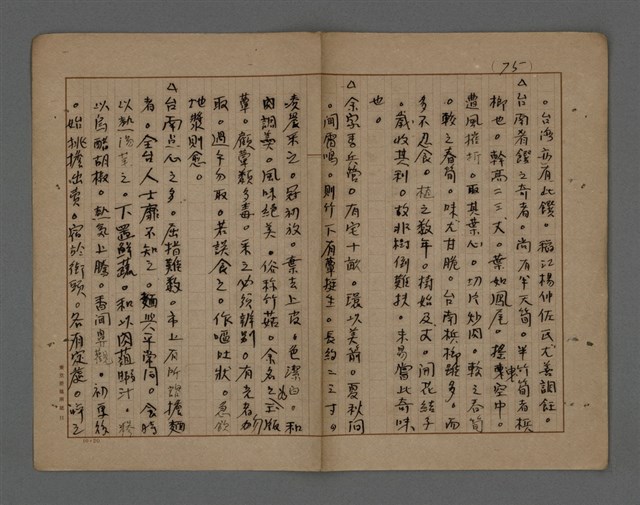 (75)
。台灣亦有此饌。稻江楊仲佐氏尤善調飪。
△台南肴饌之奇者。尚有半天筍。半竹筍者檳
榔也。幹高二三丈。葉如鳳尾。搖曳空中。
遭風摧折。取其葉心。切片炒肉。較之冬筍
。較之春筍。味尤甘脆。台南檳榔雖多。而
多不忍食。植之數年。樹始及丈。開花結子
。歲收其利。故非樹倒難扶。未易嘗此奇味
也。
△余家馬兵營。有宅十畝。環以美竹。夏秋間
。聞雷鳴。則竹下有蕈挺生。長約二三寸。
凌晨采之。冠初放。葉去上皮。色潔白。和
肉調羹。風味絕美。俗稱竹菇。余名之為玉版
蕈。顧蕈類多毒。采之必須辨別。有光者勿
取。過午勿取。若誤食之。作嘔吐狀。急飲
地漿則愈。
△台南点心之多。屈指難數。市上有所謂擔麵
者。全台人士靡不知之。麵與平常同。食時
以熱湯芼之。下置鮮蔬。和以肉葅腳汁。
以烏醋胡椒。熱氣上騰。香聞鼻觀。初更後
。始挑擔出賣。宿於街頭。各有定處。呼之